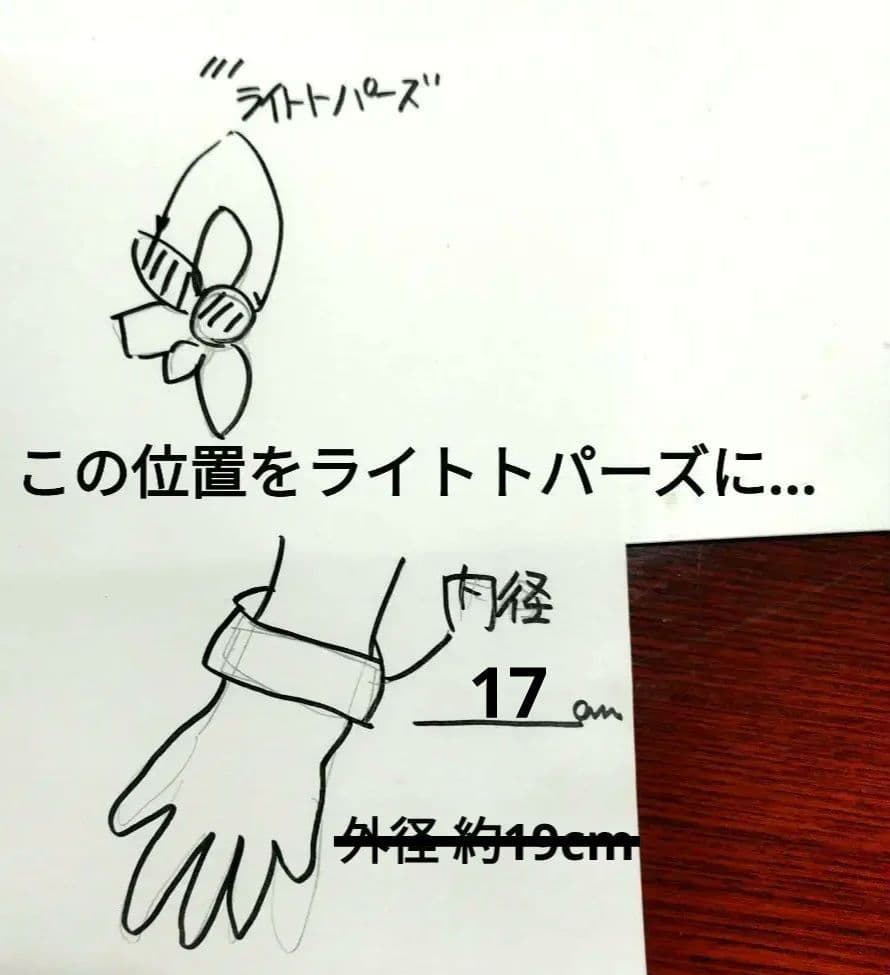 "ライトトパーズ"
この位置をライトトパーズに...
内径
17 cm
外径 約19cm